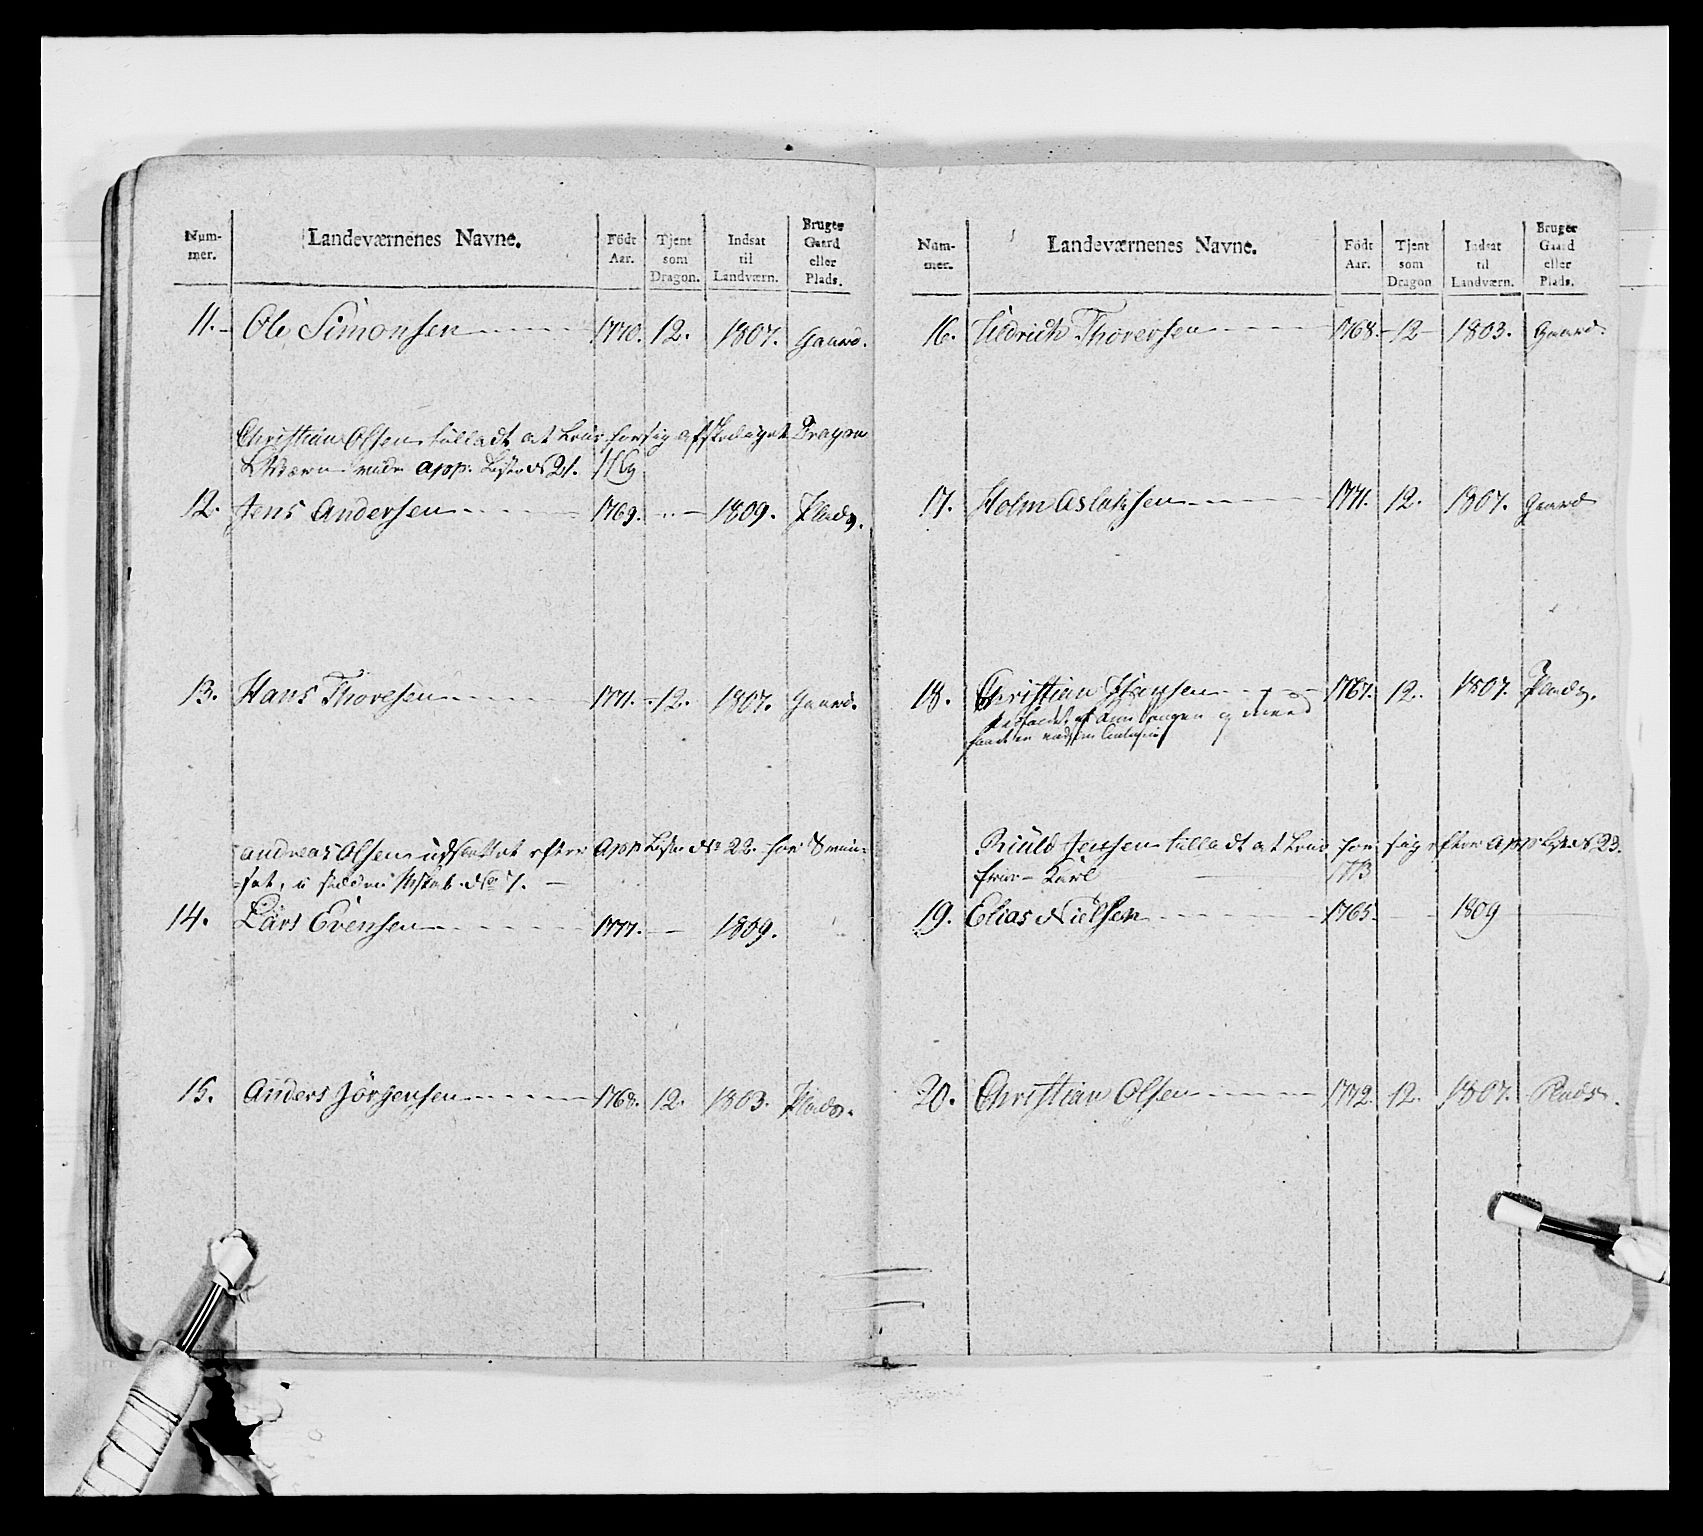 Num-mer. Landeværnenes Navne. Födt Aar. Tjent som Dragon. Indsat til Landværn. Bruger Gaard eller Plads.
11. Ole Simonsen 1770. 12. 1807. Gaard.
Christian Olsen tilladt at for sig afskediget Dragon
app. Liste No 21. 1769
12. Jens Andersen 1769. 1809. Plads.
13. Hans Thoresen 1771. 12. 1807. Gaard.
Andreas Olsen udslettet efter App Liste No 22. for
No 7.
14. Lars Evensen 1777. 1809.
15. Anders Jörgensen 1768. 12. 1803. Plads.
Num-mer. Landeværnenes Navne. Födt Aar. Tjent som Dragon Indsat til Landværn. Bruger Gaard eller Plads.
16. Thoresen 1768. 12 1803. Gaard.
17. Holm Aslaksen 1771. 12. 1807. Gaard
18. Christian 1767. 12. 1807. Plads.
Jensen tilladt at for sig efter App Liste No 23.
Karl 1773
19. Elias Nielsen 1765. 1809
20. Christian Olsen 1772. 12. 1807. Plads.